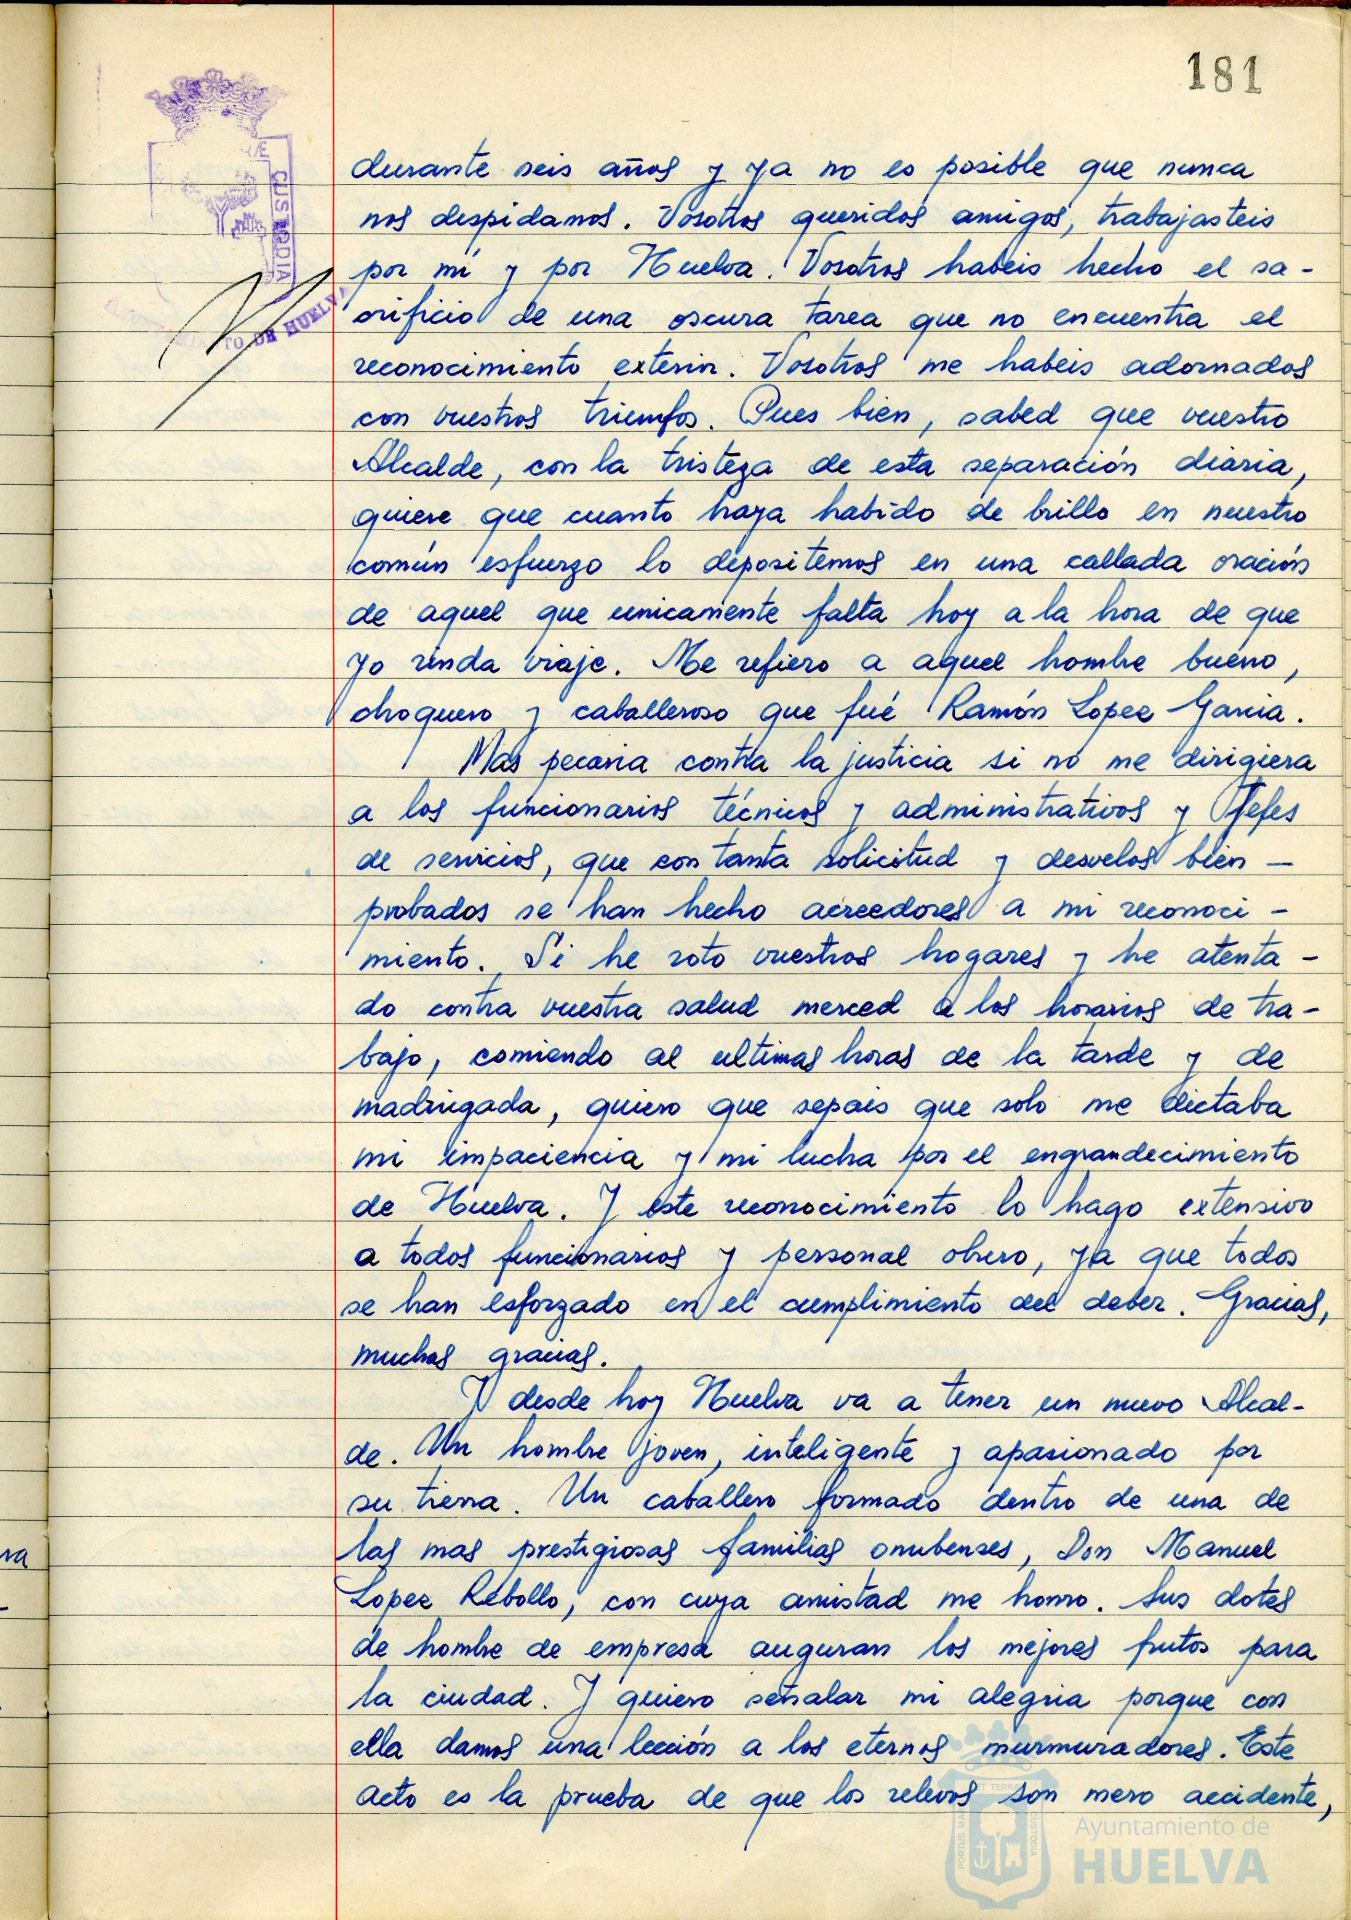 181
durante seis años y ya no es posible que nunca
nos despidamos. Vosotros queridos amigos, trabajasteis
por mí y por Huelva. Vosotros habeis hecho el sa-
crificio de una oscura tarea que no encuentra el
reconocimiento exterior. Vosotros me habeis adornados
con vuestros triumfos. Pues bien, sabed que vuestro
Alcalde, con la tristeza de esta separación diaria,
quiere que cuanto haya habido de brillo en nuestro
común esfuerzo lo depositemos en una callada oración
de aquel que unicamente falta hoy a la hora de que
yo rinda viaje. Me refiero a aquel hombre bueno,
choquero y caballeroso que fué Ramón Lopez Garcia.
Mas pecaria contra la justicia si no me dirigiera
a los funcionarios técnicos y administrativos y Jefes
de servicios, que con tanta solicitud y desvelos bien-
probados se han hecho acreedores a mi reconoci-
miento. Si he roto vuestros hogares y he atenta-
do contra vuestra salud merced a los horarios de tra-
bajo, comiendo al ultimas horas de la tarde y de
madrugada, quiero que sepais que solo me dictaba
mi impaciencia y mi lucha por el engrandecimiento
de Huelva. Y este reconocimiento lo hago extensivo
a todos funcionarios y personal obrero, ya que todos
se han esforzado en el cumplimiento del deber. Gracias,
muchas gracias.
Y desde hoy Huelva va a tener un nuevo Alcal-
de. Un hombre joven, inteligente y apasionado por
su tierra. Un caballero formado dentro de una de
las mas prestigiosas familias onubenses, Don Manuel
Lopez Rebollo, con cuya amistad me honro. Sus dotes
de hombre de empresa auguran los mejores frutos para
la ciudad. Y quiero señalar mi alegria porque con
ella damos una lección a los eternos murmuradores. Este
acto es la prueba de que los relevos son mero accidente,
CUSTODIA
TO DE HUELVA
ra
Ayuntamiento de
HUELVA